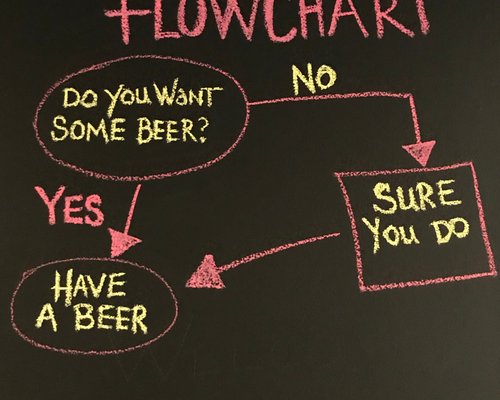 FLOWCHART
DO YOU WANT
SOME BEER?
NO
YES
SURE
YOU DO
HAVE
A BEER